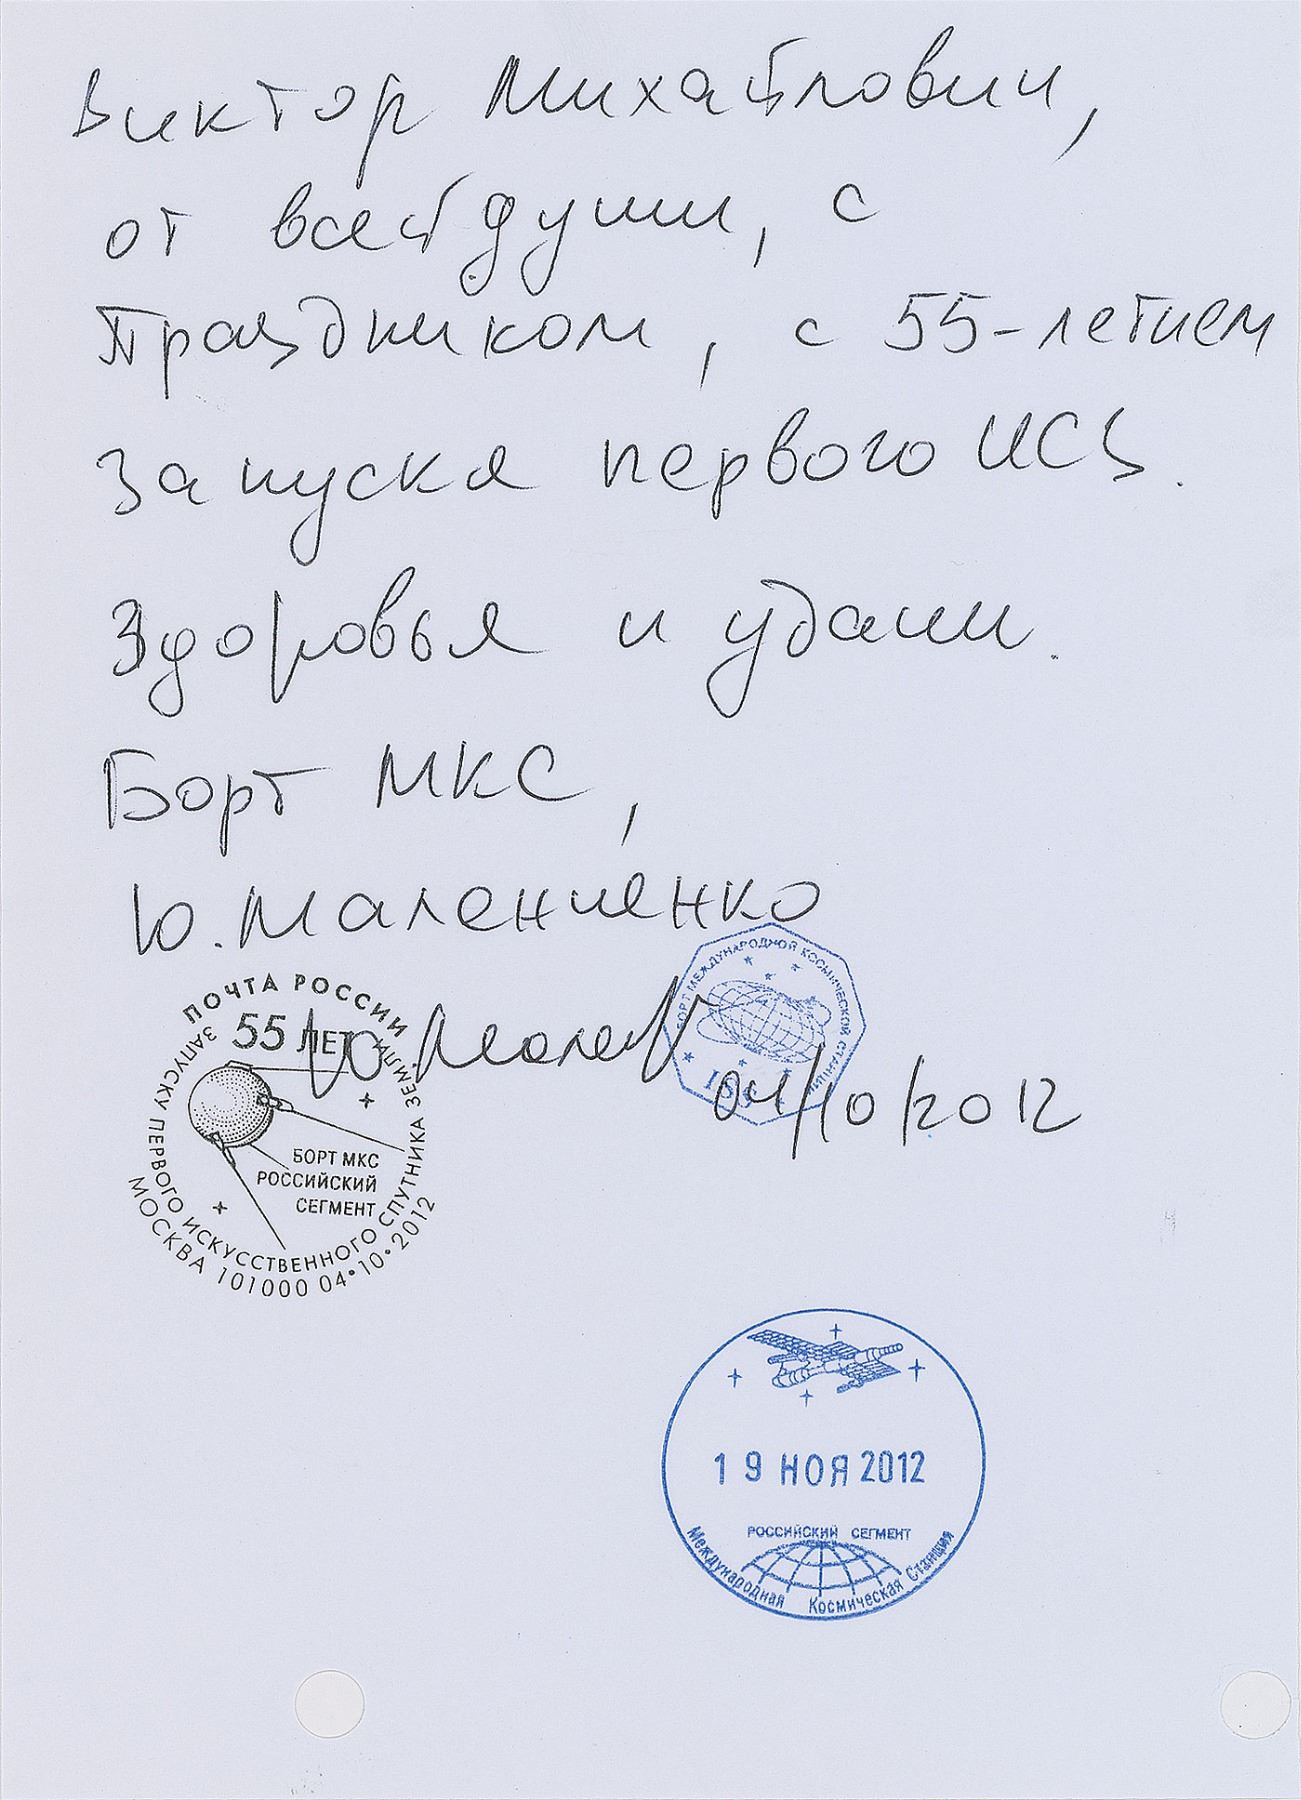 Виктор Михайлович,
от всей души, с
Праздником, с 55-летием
запуска первого ИСЗ.
Здоровья и удачи.
Борт МКС,
Ю. Маленченко
04/10/2012
ПОЧТА РОССИИ
55 ЛЕТ
ЗАПУСКУ ПЕРВОГО ИСКУССТВЕННОГО СПУТНИКА ЗЕМЛИ
БОРТ МКС
РОССИЙСКИЙ
СЕГМЕНТ
МОСКВА 101000 04•10•2012
БОРТ МЕЖДУНАРОДНОЙ КОСМИЧЕСКОЙ СТАНЦИИ
ISS
19 НОЯ 2012
РОССИЙСКИЙ СЕГМЕНТ
Международная Космическая Станция